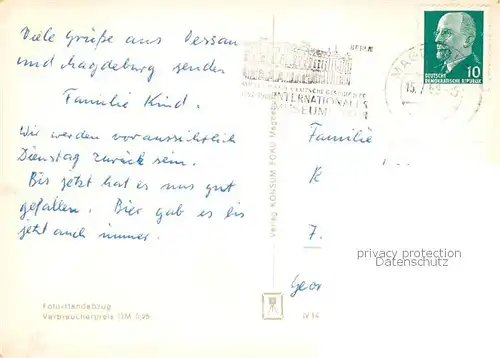 Viele Grüße aus Dessau
und Magdeburg senden
Familie Kind.
Wir werden voraussichtlich
Dienstag zurück sein.
Bis jetzt hat es uns gut
gefallen. Bier gab es bis
jetzt auch immer.
Foto-Handabzug
Verbraucherpreis DM 0,95
Verlag KONSUM FOKU Magdeburg
BERLIN
INTERNATIONALES
MUSEUM
MAGD
15.
10
DEUTSCHE
DEMOKRATISCHE REPUBLIK
Familie
7.
Geor
privacy protection
oldthing.com